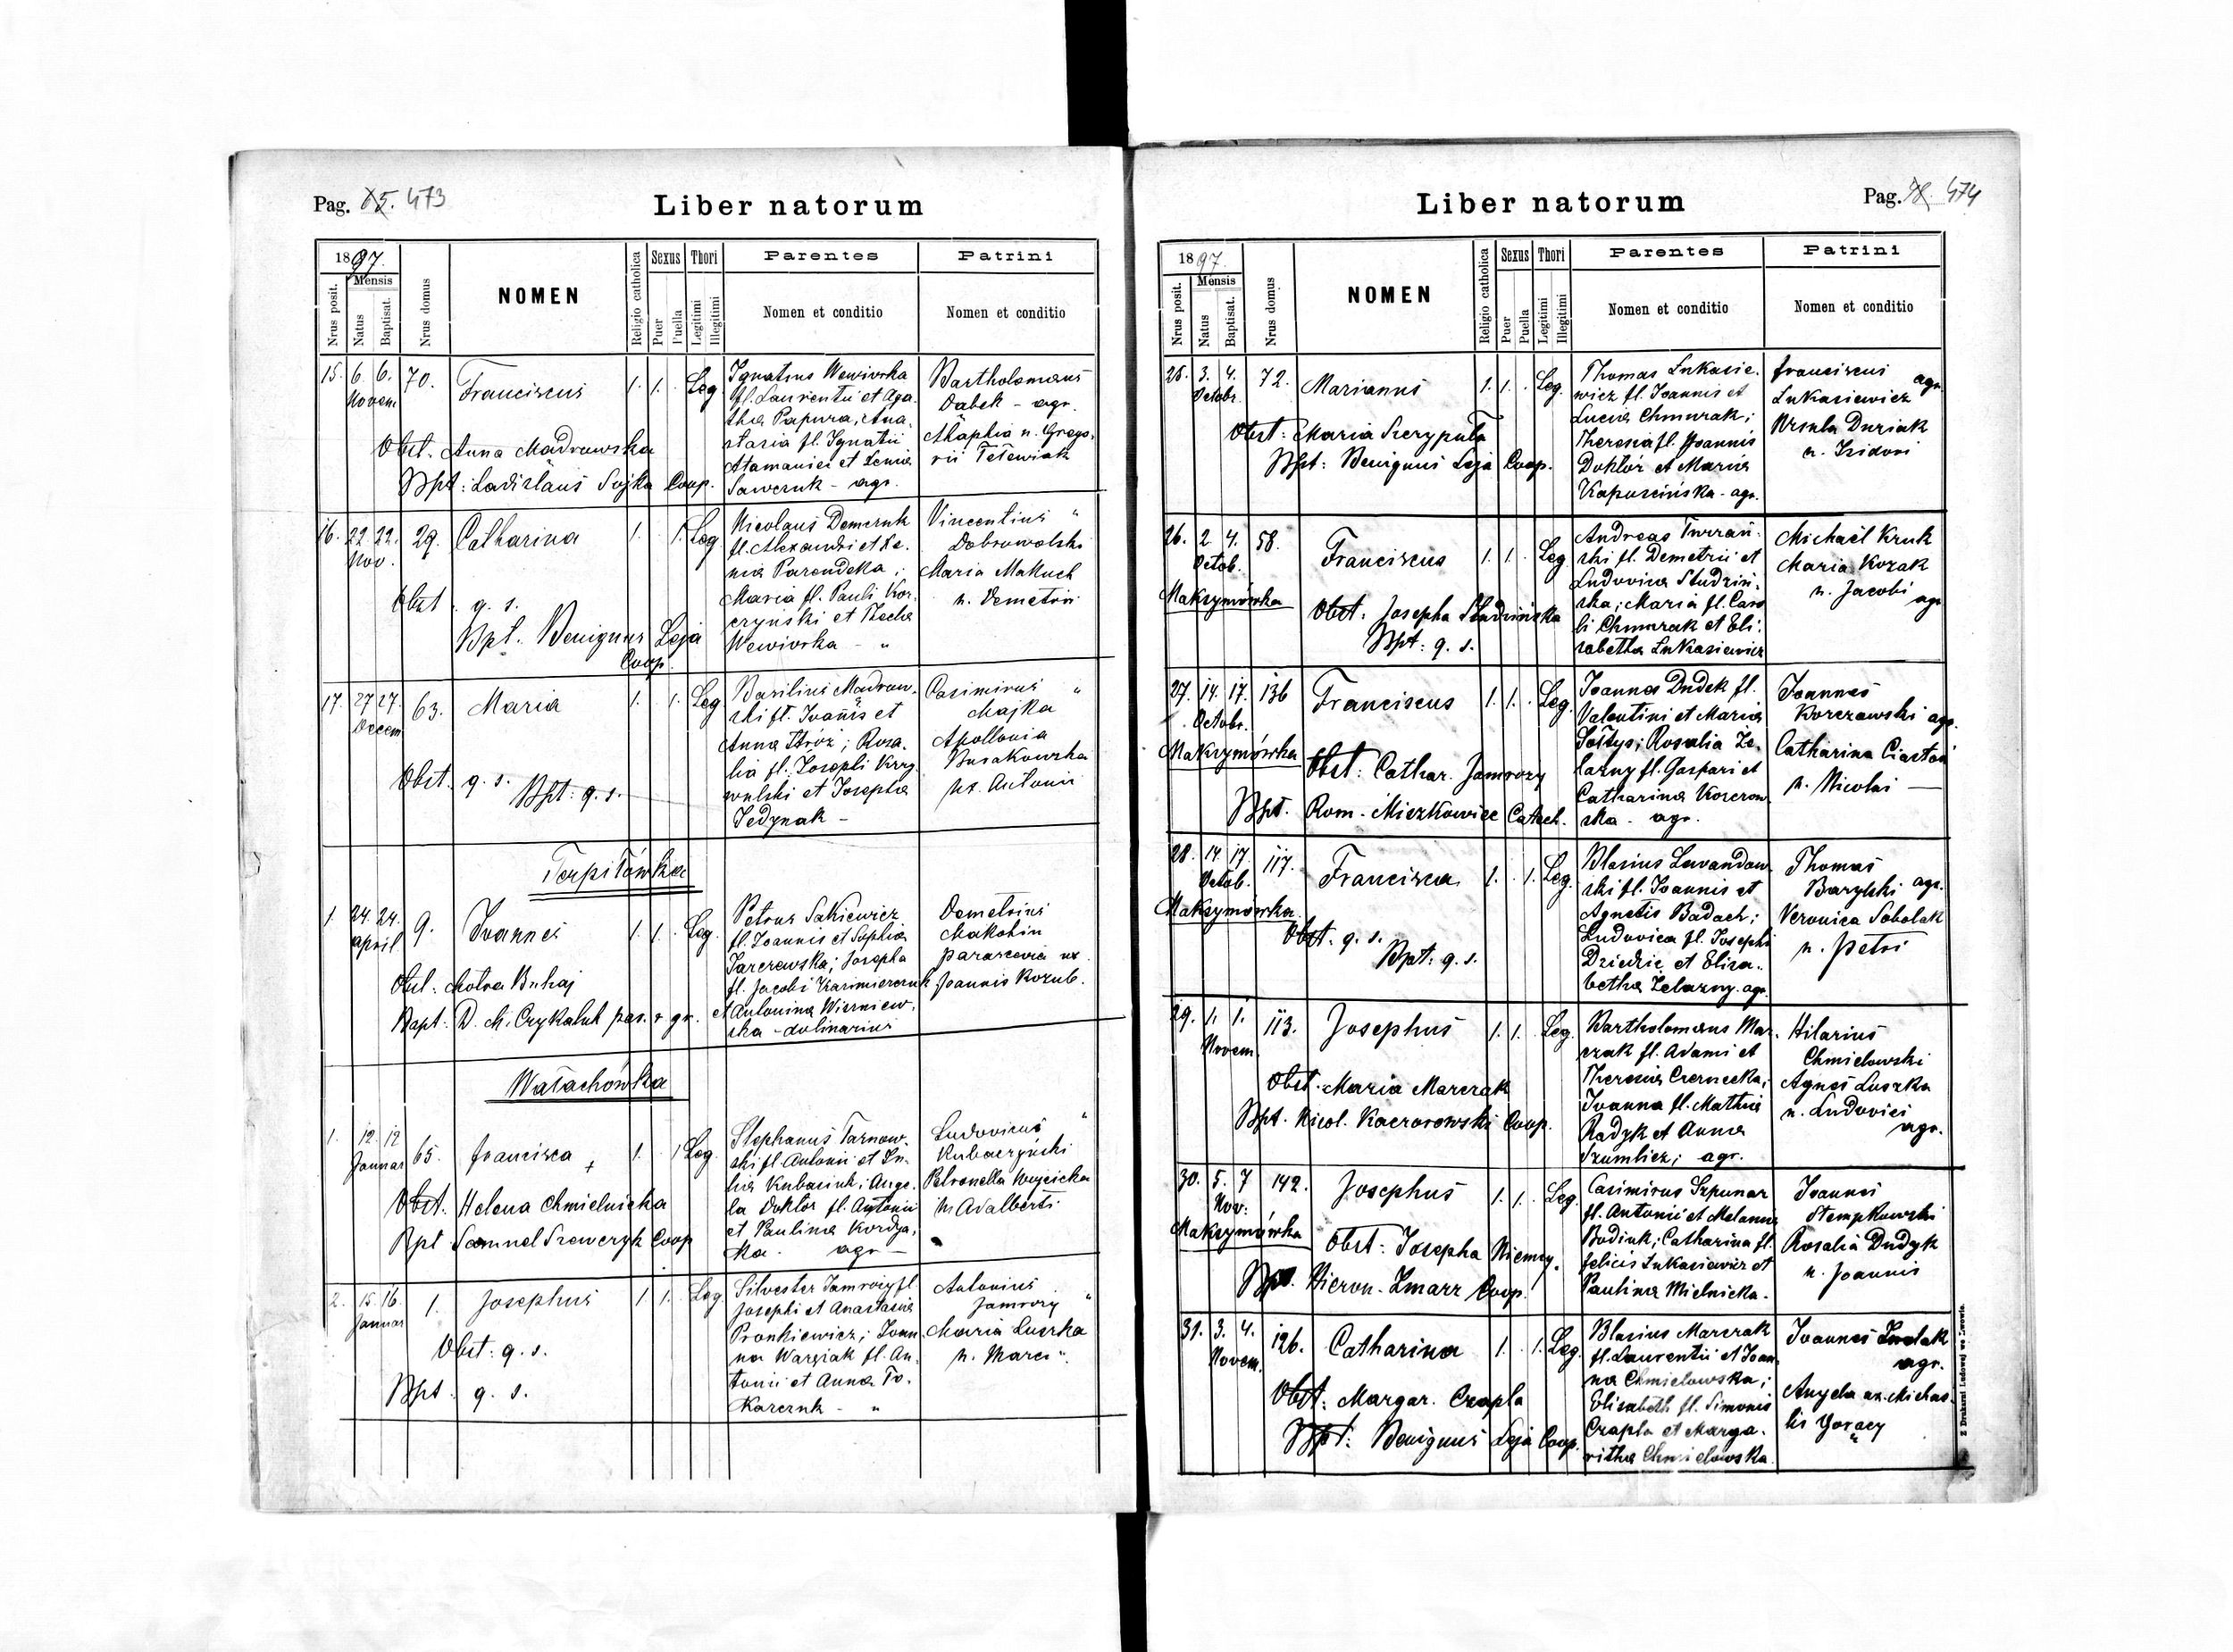 Pag. 65. 473
Liber natorum
1897.
Mensis
Nrus posit.
Natus
Baptisat.
Nrus domus
NOMEN
Religio catholica
Sexus
Puer
Puella
Thori
Legitimi
Illegitimi
Parentes
Nomen et conditio
Patrini
Nomen et conditio
15. 6. 6. 70. Franciscus 1. 1. Leg.
Novem
Obst. Anna Madrawska
Bpt: Ladislaus Sojka Coop.
Ignatius Wewiorka
fl. Laurentii et Aga-
tha Papura, Ana-
stasia fl. Ignatii
Atamaniec et Xenia
Sawczuk - agr.
Bartholomaeus
Dąbek - agr.
Maphia u. Grego-
rii Tetewiak
16. 22. 22. 29. Catharina 1. 1. Leg
Nov.
Obst. q. s.
Bpt. Benignus Leja
Coop.
Nicolaus Demczuk
fl. Alexandri et Xe-
nia Parendeka;
Maria fl. Pauli Kor-
czyński et Thecla
Wewiorka - "
Vincentius "
Dobrowolski
Maria Makuch
u. Demetrii
17. 27 27. 63. Maria 1. 1. Leg
Decem
Obst. q. s. Bpt: q. s.
Basilius Madraw-
ski fl. Joannis et
Anna Stróż; Rosa-
lia fl. Josephi Krzy-
wulski et Josepha
Jedynak -
Casimirus "
Majka
Apollonia
Busakowska
ux. Antonii
Terpiłówka
1. 24. 24. 9. Joannes 1. 1. Leg.
april
Obst: Motra Buhaj
Bapt: D. M. Czykaluk par. r. gr.
Petrus Sakiewicz
fl. Joannis et Sophia
Jarczewska; Josepha
fl. Jacobi Kazimierczuk
et Antonina Wiszniew-
ska - dolinarius
Demetrius
Makohin
Parascevia ux
Joannis Kozub.
Wałachówka
1. 12. 12 65. Francisca + 1. 1 Leg.
Januar
Obst: Helena Chmielnicka
Bpt Samuel Szewczyk Coop
Stephanus Tarnow-
ski fl. Antonii et Ju-
lia Kubasiuk; Ange-
la Doktor fl. Antonii
et Paulina Kordya-
ka. agr -
Ludovicus "
Kubaczyński
Petronella Wojcicka
u. Adalberti
2. 15. 16. 1. Josephus 1. 1. Leg.
Januar
Obst: q. s.
Bpt. q. s.
Silvester Jamroży fl.
Josephi et Anastasia
Pronkiewicz; Joan-
na Warsiak fl. An-
tonii et Anna To-
karczuk - "
Antonius
Jamrozy "
Maria Luszka
u. Marci "
Liber natorum
Pag. 474
1897.
Mensis
Nrus posit.
Natus
Baptisat.
Nrus domus
NOMEN
Religio catholica
Sexus
Puer
Puella
Thori
Legitimi
Illegitimi
Parentes
Nomen et conditio
Patrini
Nomen et conditio
25. 3. 4. 72. Marianus 1. 1. Leg.
Octobr.
Obst: Maria Szczypula
Bpt: Benignus Leja Coop.
Thomas Lukasie-
wicz fl. Joannis et
Lucia Chmurak;
Theresia fl. Joannis
Doktór et Maria
Kapuścińska - agr.
Franciscus agr.
Lukasiewicz
Ursula Duziak
u. Isidori
26. 2 4. 58. Franciscus 1. 1. Leg
Octob.
Maksymówka
Obst. Josepha Studzińska
Bpt: q. s.
Andreas Turzań-
ski fl. Demetrii et
Ludovica Studziń-
ska; Maria fl. Caro
li Chmurak et Eli-
sabetha Lukasiewicz
Michaël Kruk
Maria Kozak
u. Jacobi agr
27. 14. 17. 136 Franciscus 1. 1. Leg.
Octobr.
Maksymówka
Obst: Cathar. Jamrozy
Bpt. Rom. Miszkowicz Catech.
Joannes Dudek fl.
Valentini et Maria
Sołtys; Rosalia Że-
lazny fl. Gaspari et
Catharina Korczow-
ska - agr.
Joannes
Korczowski agr.
Catharina Ciastoń
u. Nicolai -
28. 14. 17. 117. Francisca 1. 1. Leg.
Octob.
Maksymówka
Obst. q. s.
Bpt: q. s.
Blasius Lewandow-
ski fl. Joannis et
Agnetis Badach;
Ludovica fl. Josephi
Dziedzic et Elisa-
betha Zelazny. agr.
Thomas
Barylski agr.
Veronica Sobolak
u. Petri
29. 1. 1. 113. Josephus 1. 1. Leg.
Novem.
Obst. Maria Marczak
Bpt. Nicol. Kaczorowski Coop.
Bartholomaeus Mar-
czak fl. Adami et
Theresia Czernecka;
Joanna fl. Mathia
Radyk et Anna
Szumlicz; agr.
Hilarius
Chmielowski
Agnes Luszka
u. Ludovici
agr.
30. 5. 7 142. Josephus 1. 1. Leg.
Nov:
Maksymówka
Obst: Josepha Niemy.
Bpt. Hieron. Zmarz Coop.
Casimirus Szpunar
fl. Antonii et Melania
Bodiuk; Catharina fl.
Felicis Lukasiewicz et
Paulina Mielnicka.
Joannes
Stempkowski
Rosalia Dudyk
u. Joannis
31. 3. 4. 126. Catharina 1. 1. Leg.
Novem.
Obst: Margar. Czapla
Bpt: Benignus Leja Coop.
Blasius Marczak
fl. Laurentii et Joan-
na Chmielowska;
Elisabeth fl. Simonis
Czapla et Marga-
ritha Chmielowska
Joannes
agr.
Angela ux. Michae-
lis Gorący
Z Drukarni Ludowej we Lwowie.